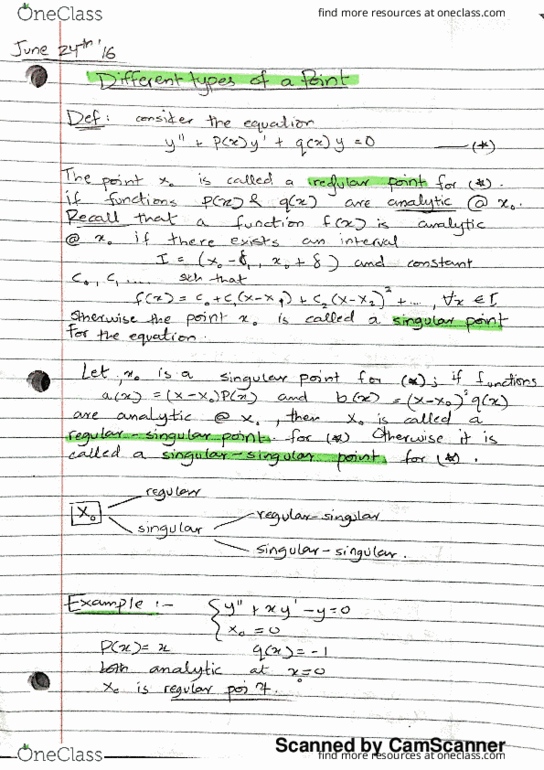 OneClass
find more resources at oneclass.com
June 24th '16
Different types of a Point
Def: consider the equation
y" + P(x)y' + q(x)y = 0 —— (*)
The point x₀ is called a regular point for (*).
if functions P(x) & q(x) are analytic @ x₀.
Recall that a function f(x) is analytic
@ x₀ if there exists an interval
I = (x₀-δ, x₀+δ) and constant
C₀, C₁ ... sch that
f(x) = C₀ + C₁(x-x₁) + C₂(x-x₂)² + ... , ∀x ∈ I
Otherwise the point x₀ is called a singular point
For the equation.
Let, x₀ is a singular point for (*); if functions
a(x) = (x-x₀)P(x) and b(x) = (x-x₀)²q(x)
are analytic @ x₀, then x₀ is called a
regular-singular point for (*) Otherwise it is
called a singular-singular point, for (*).
regular
X₀
singular
regular-singular
singular-singular.
Example :-
{ y" + xy' - y = 0
x₀ = 0
P(x) = x q(x) = -1
both analytic at x₀=0
X₀ is regular point.
Scanned by CamScanner
OneClass
find more resources at oneclass.com